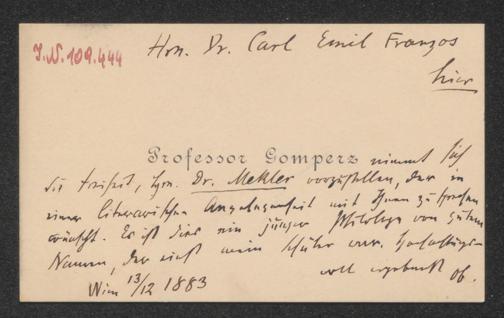 J.N. 109.444
Hrn. Dr. Carl Emil Franzos
hier
Professor Gomperz nimmt sich
die Freiheit, Hrn. Dr. Mekler vorzustellen, der in
einer literarischen Angelegenheit mit Ihnen zu sprechen
wünscht. Es ist dies ein junger Philologe von gutem
Namen, der einst mein Schüler war. Hochachtungs-
voll ergebenst ob.
Wien 13/12 1883